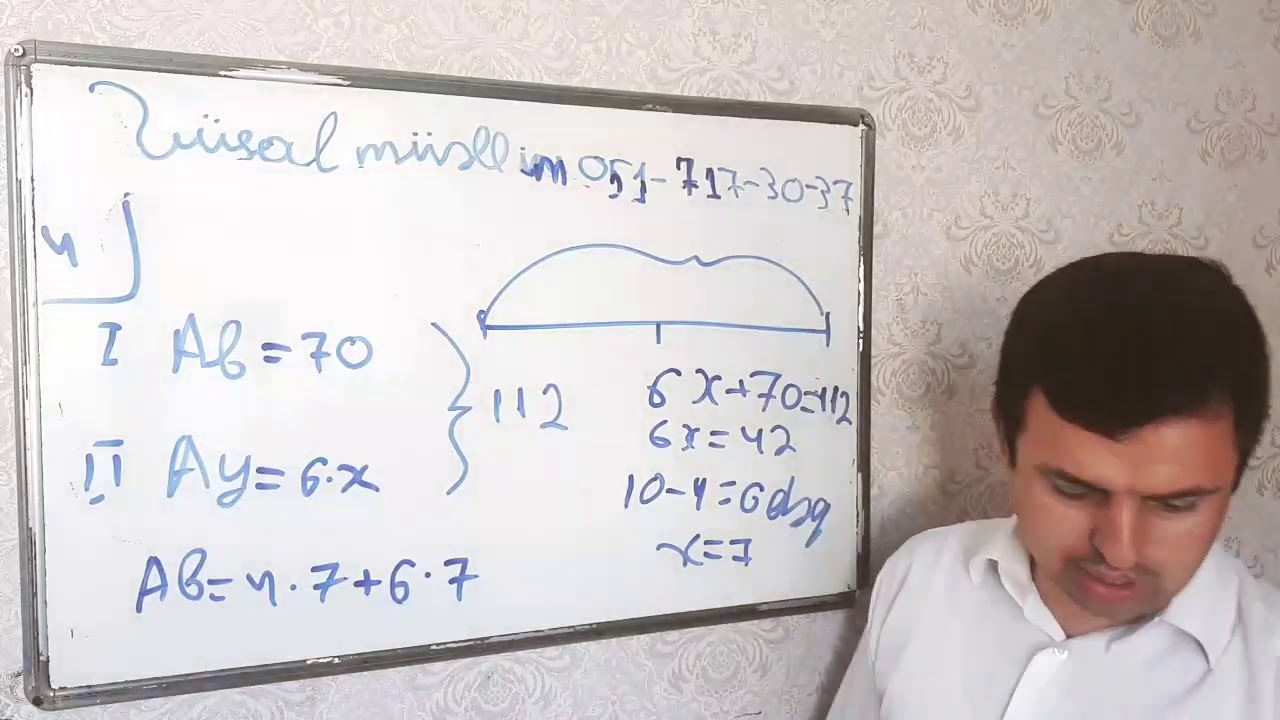 Vüsal müəllim 051-717-30-37
4
I Ab=70
II Ay=6·x
112
6x+70=112
6x=42
10-4=6dəq
x=7
Ab=4·7+6·7